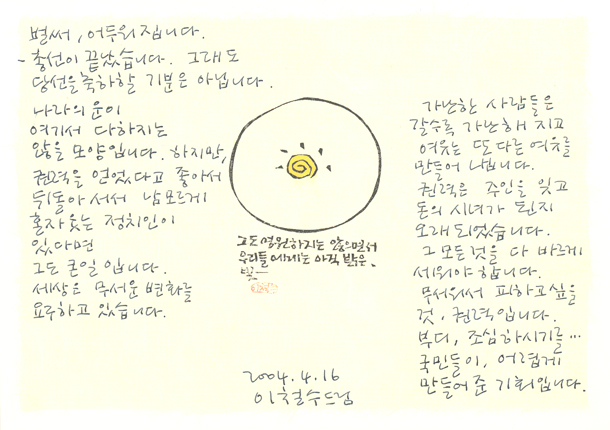 벌써, 어두워집니다.
- 총선이 끝났습니다. 그래도
당선을축하할 기분은 아닙니다.
나라의 운이
여기서 다하지는
않을 모양입니다. 하지만,
권력을 얻었다고 좋아서
뒤돌아 서서 남모르게
혼자 웃는 정치인이
있다면
그도 큰일입니다.
세상은 무서운 변화를
요구하고 있습니다.
그도 영원하지는 않으면서
우리들에게는 아직 밝은.
빛—
가난한 사람들은
갈수록 가난해 지고
여유는 또 다른 여유를
만들어 냅니다.
권력은 주인을 잊고
돈의 시녀가 된지
오래 되었습니다.
그 모든것을 다 바르게
세워야 합니다.
무서워서 피하고싶을
것. 권력입니다.
부디, 조심하시기를...
국민들이, 어렵게
만들어 준 기회입니다.
2004.4.16
이철수드림